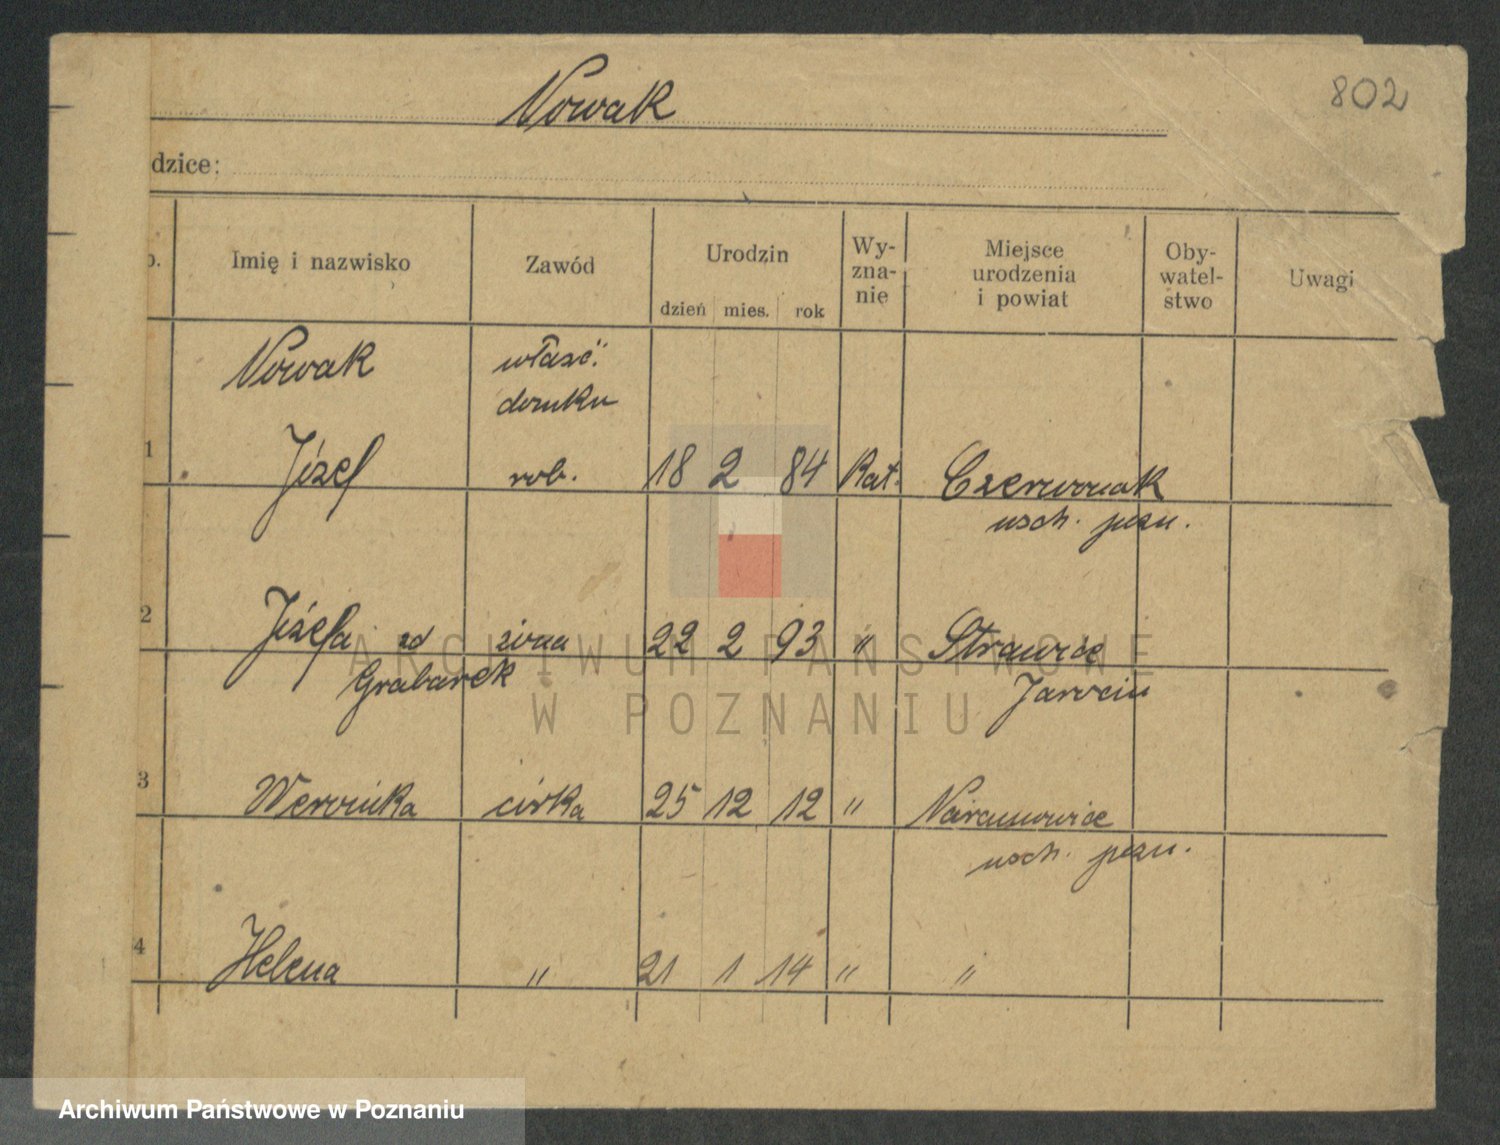 802
Nowak
dzice:
Imię i nazwisko Zawód Urodzin Wyznanie Miejsce urodzenia i powiat Obywatelstwo Uwagi
dzień mies. rok
Nowak właść. domku
1 Józef rob. 18 2 84 Kat. Czerwonak
wsch. pozn.
2 Józefa zd żona 22 2 93 " 
Grabarek Jarocin
3 Weronika córka 25 12 12 " Naramowice
wsch. pozn.
4 Helena " 21 1 14 " "
ARCHIWUM PAŃSTWOWE
W POZNANIU
Archiwum Państwowe w Poznaniu